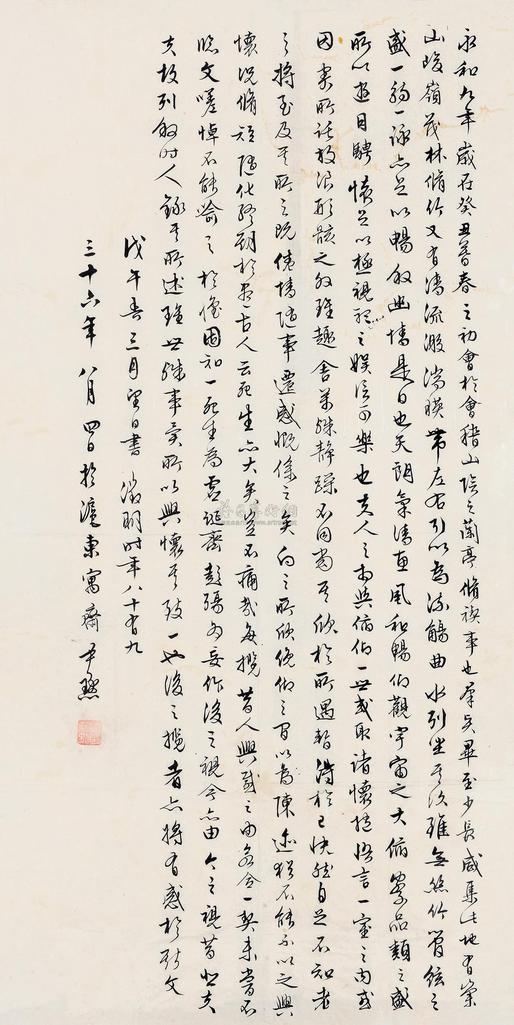 永和九年歲在癸丑暮春之初會於會稽山陰之蘭亭脩禊事也羣賢畢至少長咸集此地有崇
山峻嶺茂林脩竹又有清流激湍暎帶左右引以為流觴曲水列坐其次雖無絲竹管弦之
盛一觴一詠亦足以暢敘幽情是日也天朗氣清惠風和暢仰觀宇宙之大俯察品類之盛
所以遊目騁懷足以極視聽之娛信可樂也夫人之相與俯仰一世或取諸懷抱悟言一室之內或
因寄所託放浪形骸之外雖趣舍萬殊靜躁不同當其欣於所遇暫得於己快然自足不知老
之將至及其所之既倦情隨事遷感慨係之矣向之所欣俛仰之間以為陳迹猶不能不以之興
懷況脩短隨化終期於盡古人云死生亦大矣豈不痛哉每攬昔人興感之由若合一契未嘗不
臨文嗟悼不能喻之於懷固知一死生為虛誕齊彭殤為妄作後之視今亦由今之視昔悲夫
夫故列敘時人錄其所述雖世殊事異所以興懷其致一也後之攬者亦將有感於斯文
戊午春三月望日書 徵明時年八十有九
三十六年八月四日於滬東寓齋 尹默